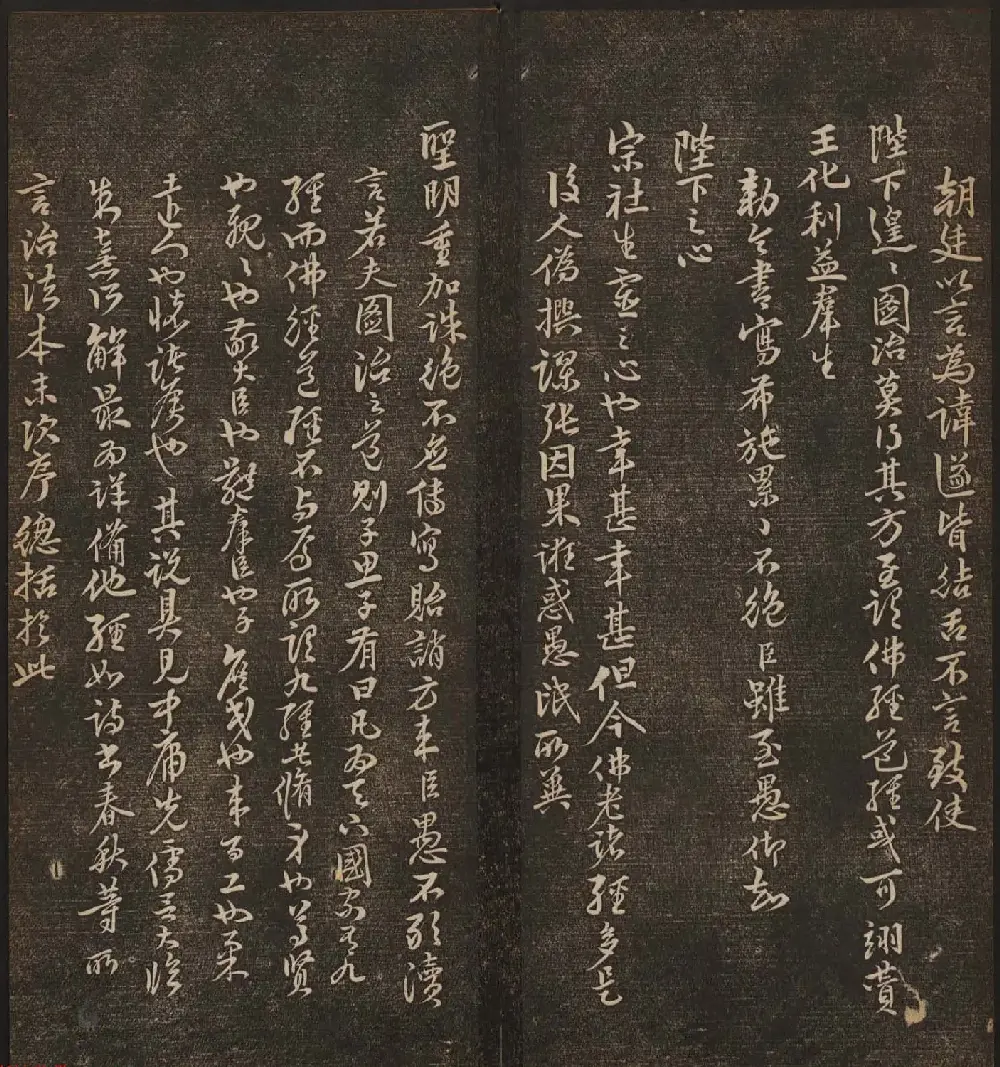 朝廷以言為諱遂皆結舌不言致使
陛下遑〻國治莫得其方至謂佛經道經或可翊贊
王化利益羣生
勅令書寫布施累〻不絕臣雖至愚仰知
陛下之心
宗社生靈之心也幸甚幸甚但今佛老諸經多是
後人偽撰謬張因果誑惑愚氓所冀
聖明重加誅絕不應傳寫貽誚方来臣愚不敢瀆
言若夫圖治之道則子思子有曰凡為天下國家有九
經而佛經道經不与焉所謂九經者脩身也尊賢
也親〻也敬大臣也體羣臣也子庶民也来百工也柔
遠人也懷諸侯也其說具見中庸先儒言大臨
朱熹所解最為詳備他經如詩書春秋等所
言治法本末次序總括於此